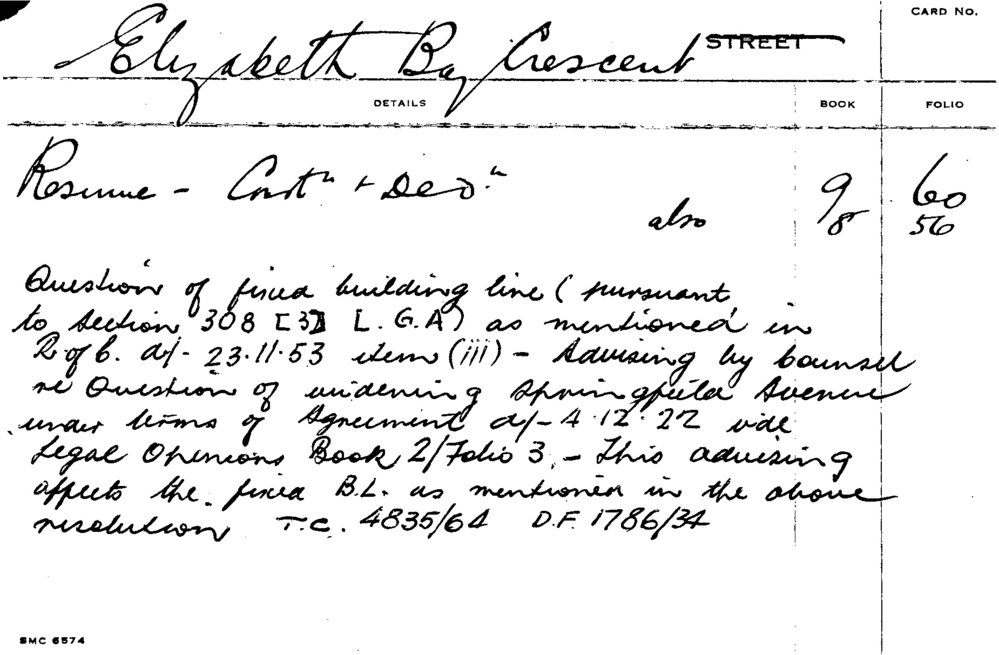 CARD NO.
Elizabeth Bay Crescent STREET
DETAILS BOOK FOLIO
Resume - Constn + Dedn 9 60
also 8 56
Question of fixed building line (pursuant
to Section 308 [3] L.G.A) as mentioned in
R of C. d/- 23.11.53 item (iii) - Advising by Counsel
re Question of widening Springfield Avenue
under terms of Agreement d/- 4.12.22 vide
Legal Opinions Book 2/Folio 3. - This advising
affects the fixed B.L. as mentioned in the above
resolution T.C. 4835/64 D.F. 1786/34
SMC 6574